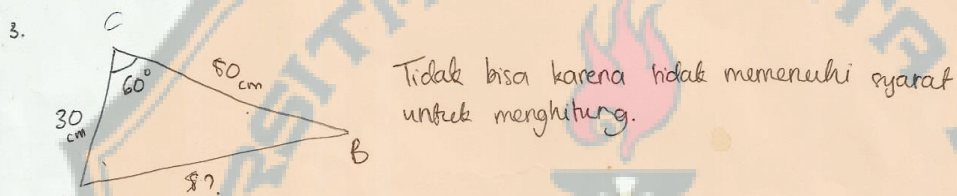 3.
C
60°
80 cm
30 cm
B
8?
Tidak bisa karena tidak memenuhi syarat
untuk menghitung.